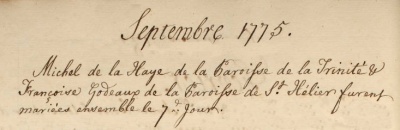 Septembre 1775.
Michel de la Haye de la Paroisse de la Trinité &
Françoise Godeaux de la Paroisse de St. Hélier furent
mariées ensemble le 7.e Jour.